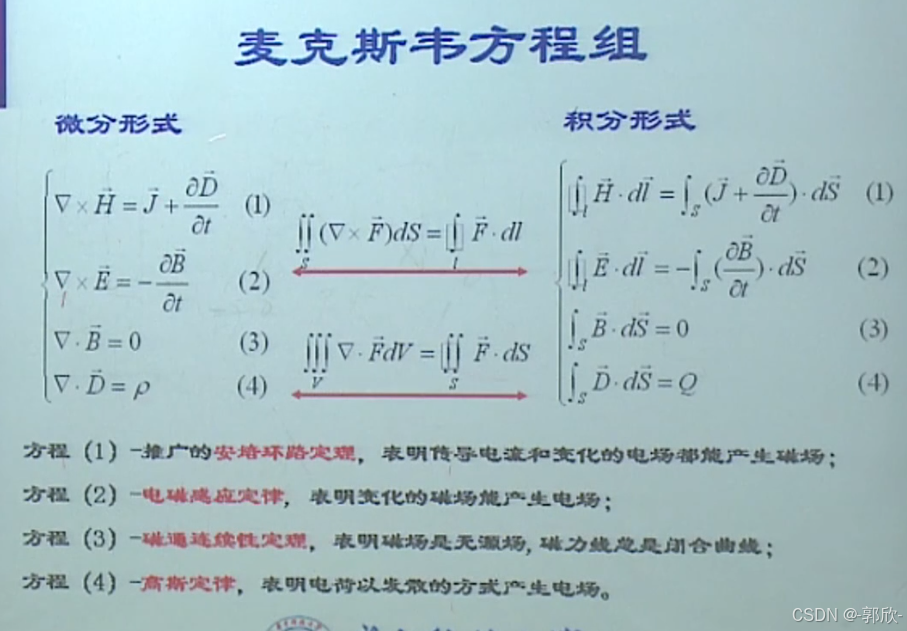 麦克斯韦方程组
微分形式
积分形式
∇ × H⃗ = J⃗ + ∂D⃗/∂t (1)
∇ × E⃗ = − ∂B⃗/∂t (2)
∇ · B⃗ = 0 (3)
∇ · D⃗ = ρ (4)
∬_S (∇ × F⃗)dS = ∮_l F⃗ · dl
∭_V ∇ · F⃗dV = ∯_S F⃗ · dS
∮_l H⃗ · dl⃗ = ∫_S (J⃗ + ∂D⃗/∂t) · dS⃗ (1)
∮_l E⃗ · dl⃗ = −∫_S (∂B⃗/∂t) · dS⃗ (2)
∫_S B⃗ · dS⃗ = 0 (3)
∫_S D⃗ · dS⃗ = Q (4)
方程（1）-推广的安培环路定理，表明传导电流和变化的电场都能产生磁场；
方程（2）-电磁感应定律，表明变化的磁场能产生电场；
方程（3）-磁通连续性定理，表明磁场是无源场,磁力线总是闭合曲线；
方程（4）-高斯定律，表明电荷以发散的方式产生电场。
CSDN @-郭欣-